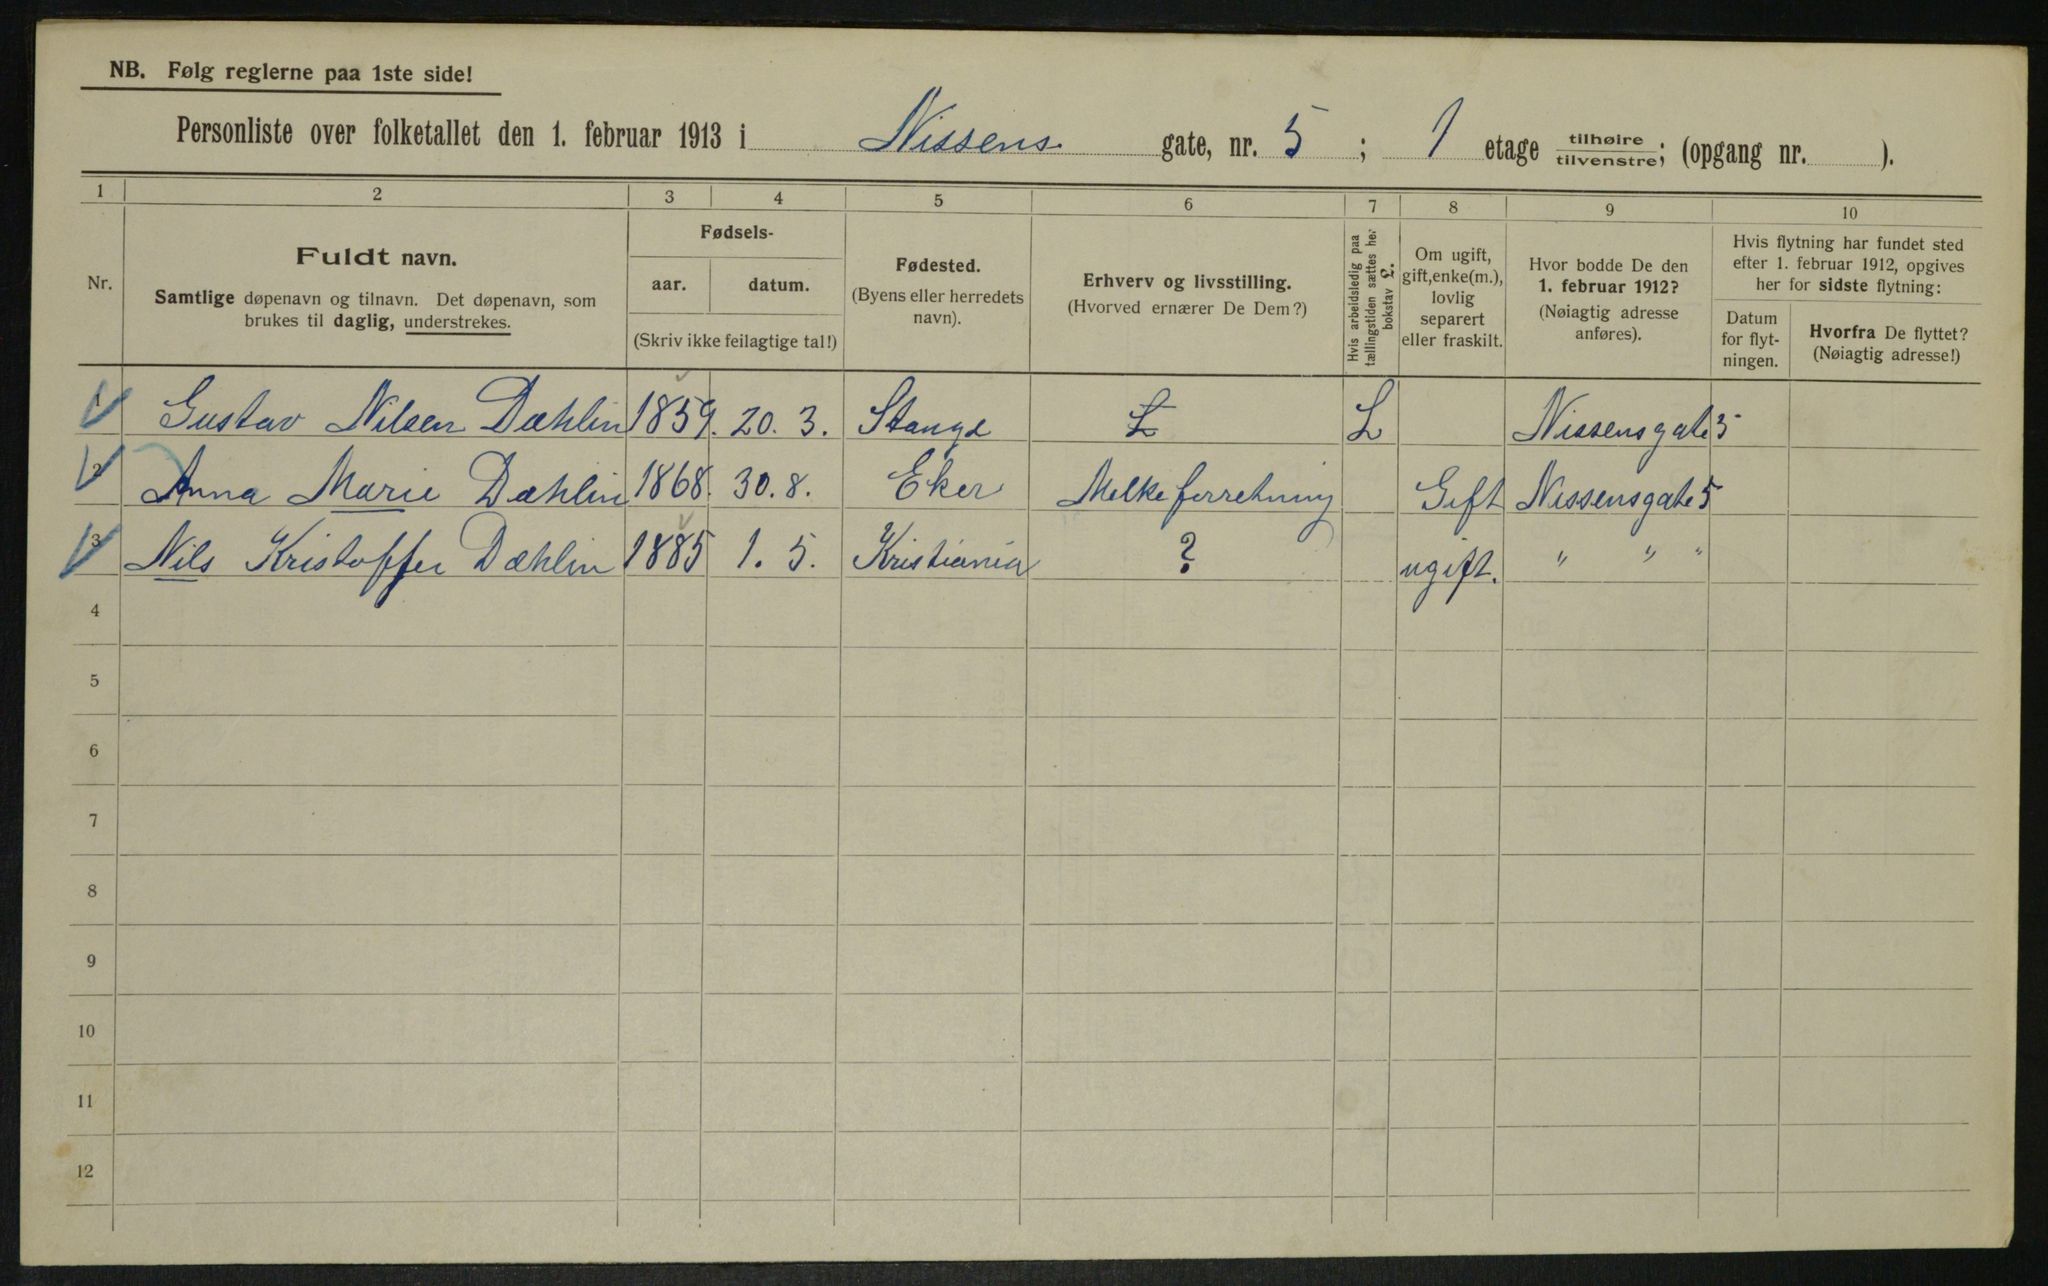 NB. Følg reglerne paa 1ste side!
Personliste over folketallet den 1. februar 1913 i Nissens gate, nr. 5; 1 etage tilhøire tilvenstre; (opgang nr. ).
1 2 3 4 5 6 7 8 9 10
Nr.
Fuldt navn.
Samtlige døpenavn og tilnavn. Det døpenavn, som
brukes til daglig, understrekes.
Fødsels-
aar. datum.
(Skriv ikke feilagtige tal!)
Fødested.
(Byens eller herredets
navn).
Erhverv og livsstilling.
(Hvorved ernærer De Dem?)
Hvis arbeidsledig paa
tællingstiden sættes her
bokstav L.
Om ugift,
gift, enke(m.),
lovlig
separert
eller fraskilt.
Hvor bodde De den
1. februar 1912?
(Nøiagtig adresse
anføres).
Hvis flytning har fundet sted
efter 1. februar 1912, opgives
her for sidste flytning:
Datum
for flyt-
ningen.
Hvorfra De flyttet?
(Nøiagtig adresse!)
1 Gustav Nilsen Dæhlin 1859. 20. 3. Stange L L Nissensgate 5
2 Anna Marie Dæhlin 1868. 30. 8. Eker Melkeforretning Gift Nissensgate 5
3 Nils Kristoffer Dæhlin 1885 1. 5. Kristiania ? ugift. " " "
4
5
6
7
8
9
10
11
12